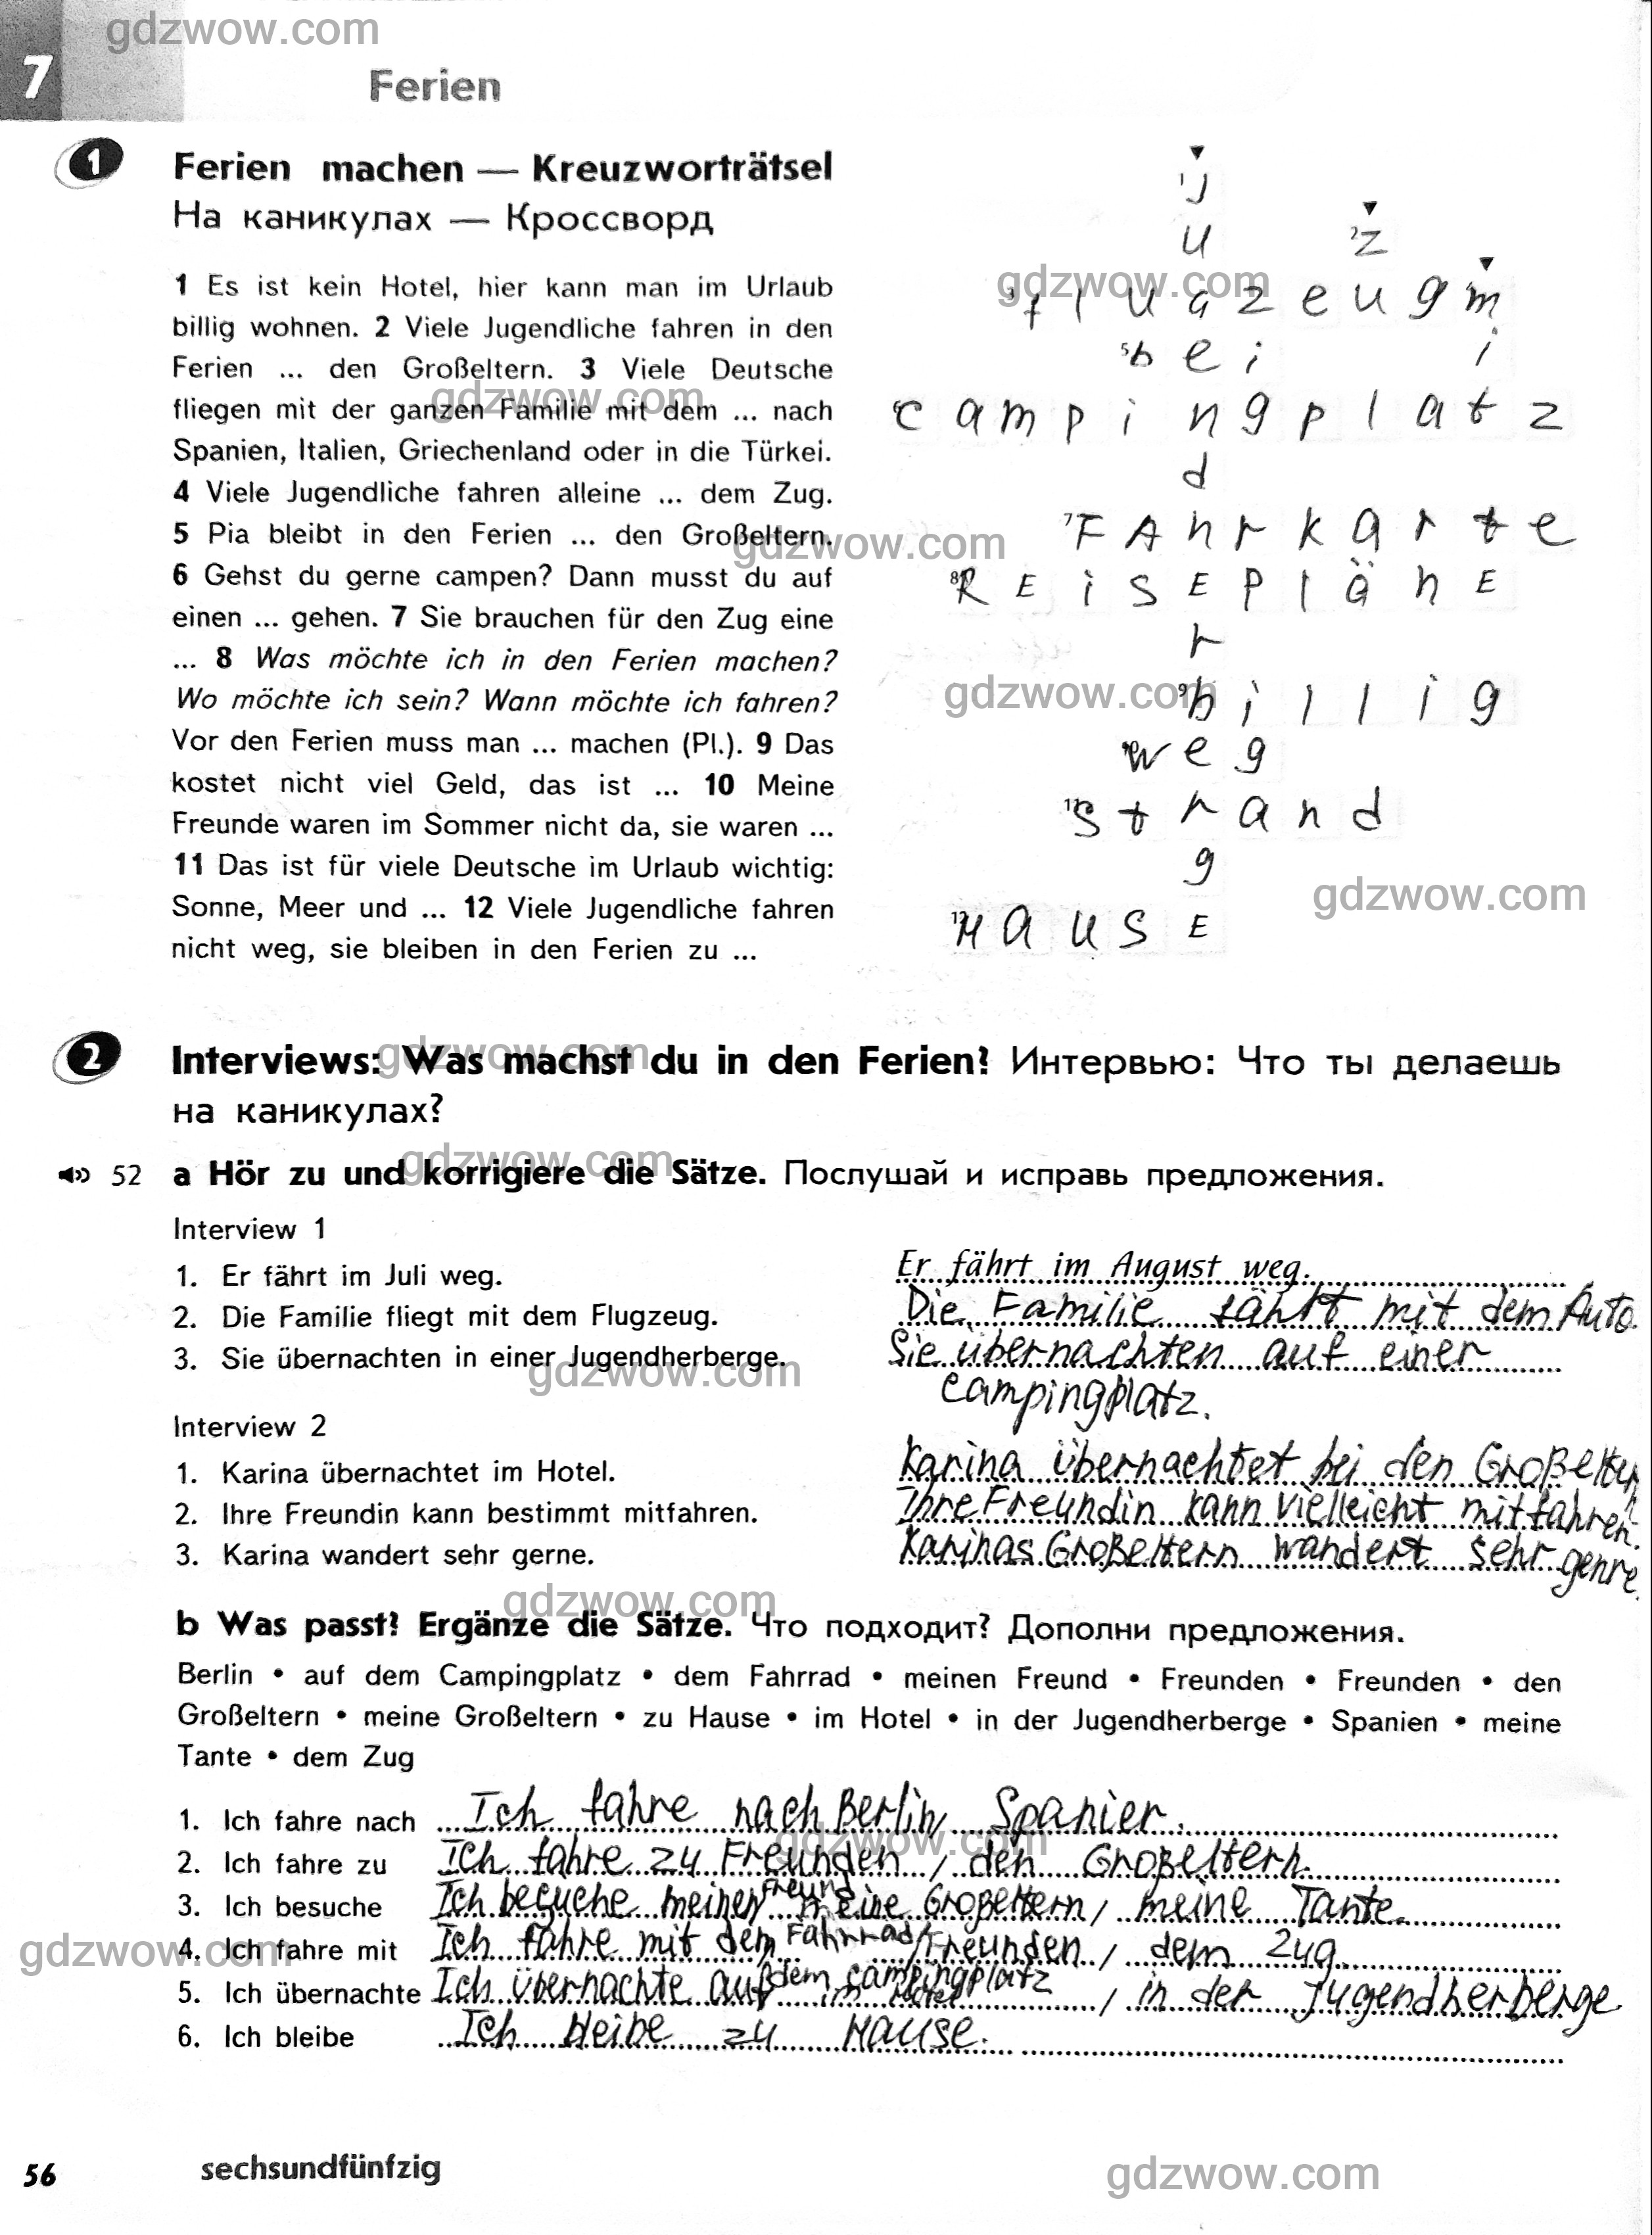 gdzwow.com
7 Ferien
1 Ferien machen — Kreuzworträtsel
На каникулах — Кроссворд
1 Es ist kein Hotel, hier kann man im Urlaub
billig wohnen. 2 Viele Jugendliche fahren in den
Ferien ... den Großeltern. 3 Viele Deutsche
fliegen mit der ganzen Familie mit dem ... nach
Spanien, Italien, Griechenland oder in die Türkei.
4 Viele Jugendliche fahren alleine ... dem Zug.
5 Pia bleibt in den Ferien ... den Großeltern.
6 Gehst du gerne campen? Dann musst du auf
einen ... gehen. 7 Sie brauchen für den Zug eine
... 8 Was möchte ich in den Ferien machen?
Wo möchte ich sein? Wann möchte ich fahren?
Vor den Ferien muss man ... machen (Pl.). 9 Das
kostet nicht viel Geld, das ist ... 10 Meine
Freunde waren im Sommer nicht da, sie waren ...
11 Das ist für viele Deutsche im Urlaub wichtig:
Sonne, Meer und ... 12 Viele Jugendliche fahren
nicht weg, sie bleiben in den Ferien zu ...
1 J
u 2 z
gdzwow.com
3 f l u g z e u g m
5 b e i i
gdzwow.com
c a m p i n g p l a t z
d
7 F A h r k a r t e
gdzwow.com
8 R E i S E P l ä n E
r
gdzwow.com
9 b i l l i g
10 w e g
11 S t r a n d
g
gdzwow.com
12 H a u s E
2 Interviews: Was machst du in den Ferien? Интервью: Что ты делаешь
gdzwow.com
на каникулах?
52 a Hör zu und korrigiere die Sätze. Послушай и исправь предложения.
gdzwow.com
Interview 1
1. Er fährt im Juli weg. Er fährt im August weg.
2. Die Familie fliegt mit dem Flugzeug. Die Familie fährt mit dem Auto.
3. Sie übernachten in einer Jugendherberge. Sie übernachten auf einer
gdzwow.com
campingplatz.
Interview 2
1. Karina übernachtet im Hotel. Karina übernachtet bei den Großeltern
2. Ihre Freundin kann bestimmt mitfahren. Ihre Freundin kann vielleicht mitfahren.
3. Karina wandert sehr gerne. Karinas Großeltern wandert sehr genre.
gdzwow.com
b Was passt? Ergänze die Sätze. Что подходит? Дополни предложения.
Berlin • auf dem Campingplatz • dem Fahrrad • meinen Freund • Freunden • Freunden • den
Großeltern • meine Großeltern • zu Hause • im Hotel • in der Jugendherberge • Spanien • meine
Tante • dem Zug
1. Ich fahre nach Ich fahre nach Berlin, Spanier.
gdzwow.com
2. Ich fahre zu Ich fahre zu Freunden, den Großeltern.
3. Ich besuche Ich besuche meinen Freund, meine Großeltern, meine Tante.
gdzwow.com
4. Ich fahre mit Ich fahre mit dem Fahrrad, Freunden, dem Zug.
5. Ich übernachte Ich übernachte auf dem campingplatz im Hotel, in der Jugendherberge
6. Ich bleibe Ich bleibe zu Hause.
56 sechsundfünfzig
gdzwow.com